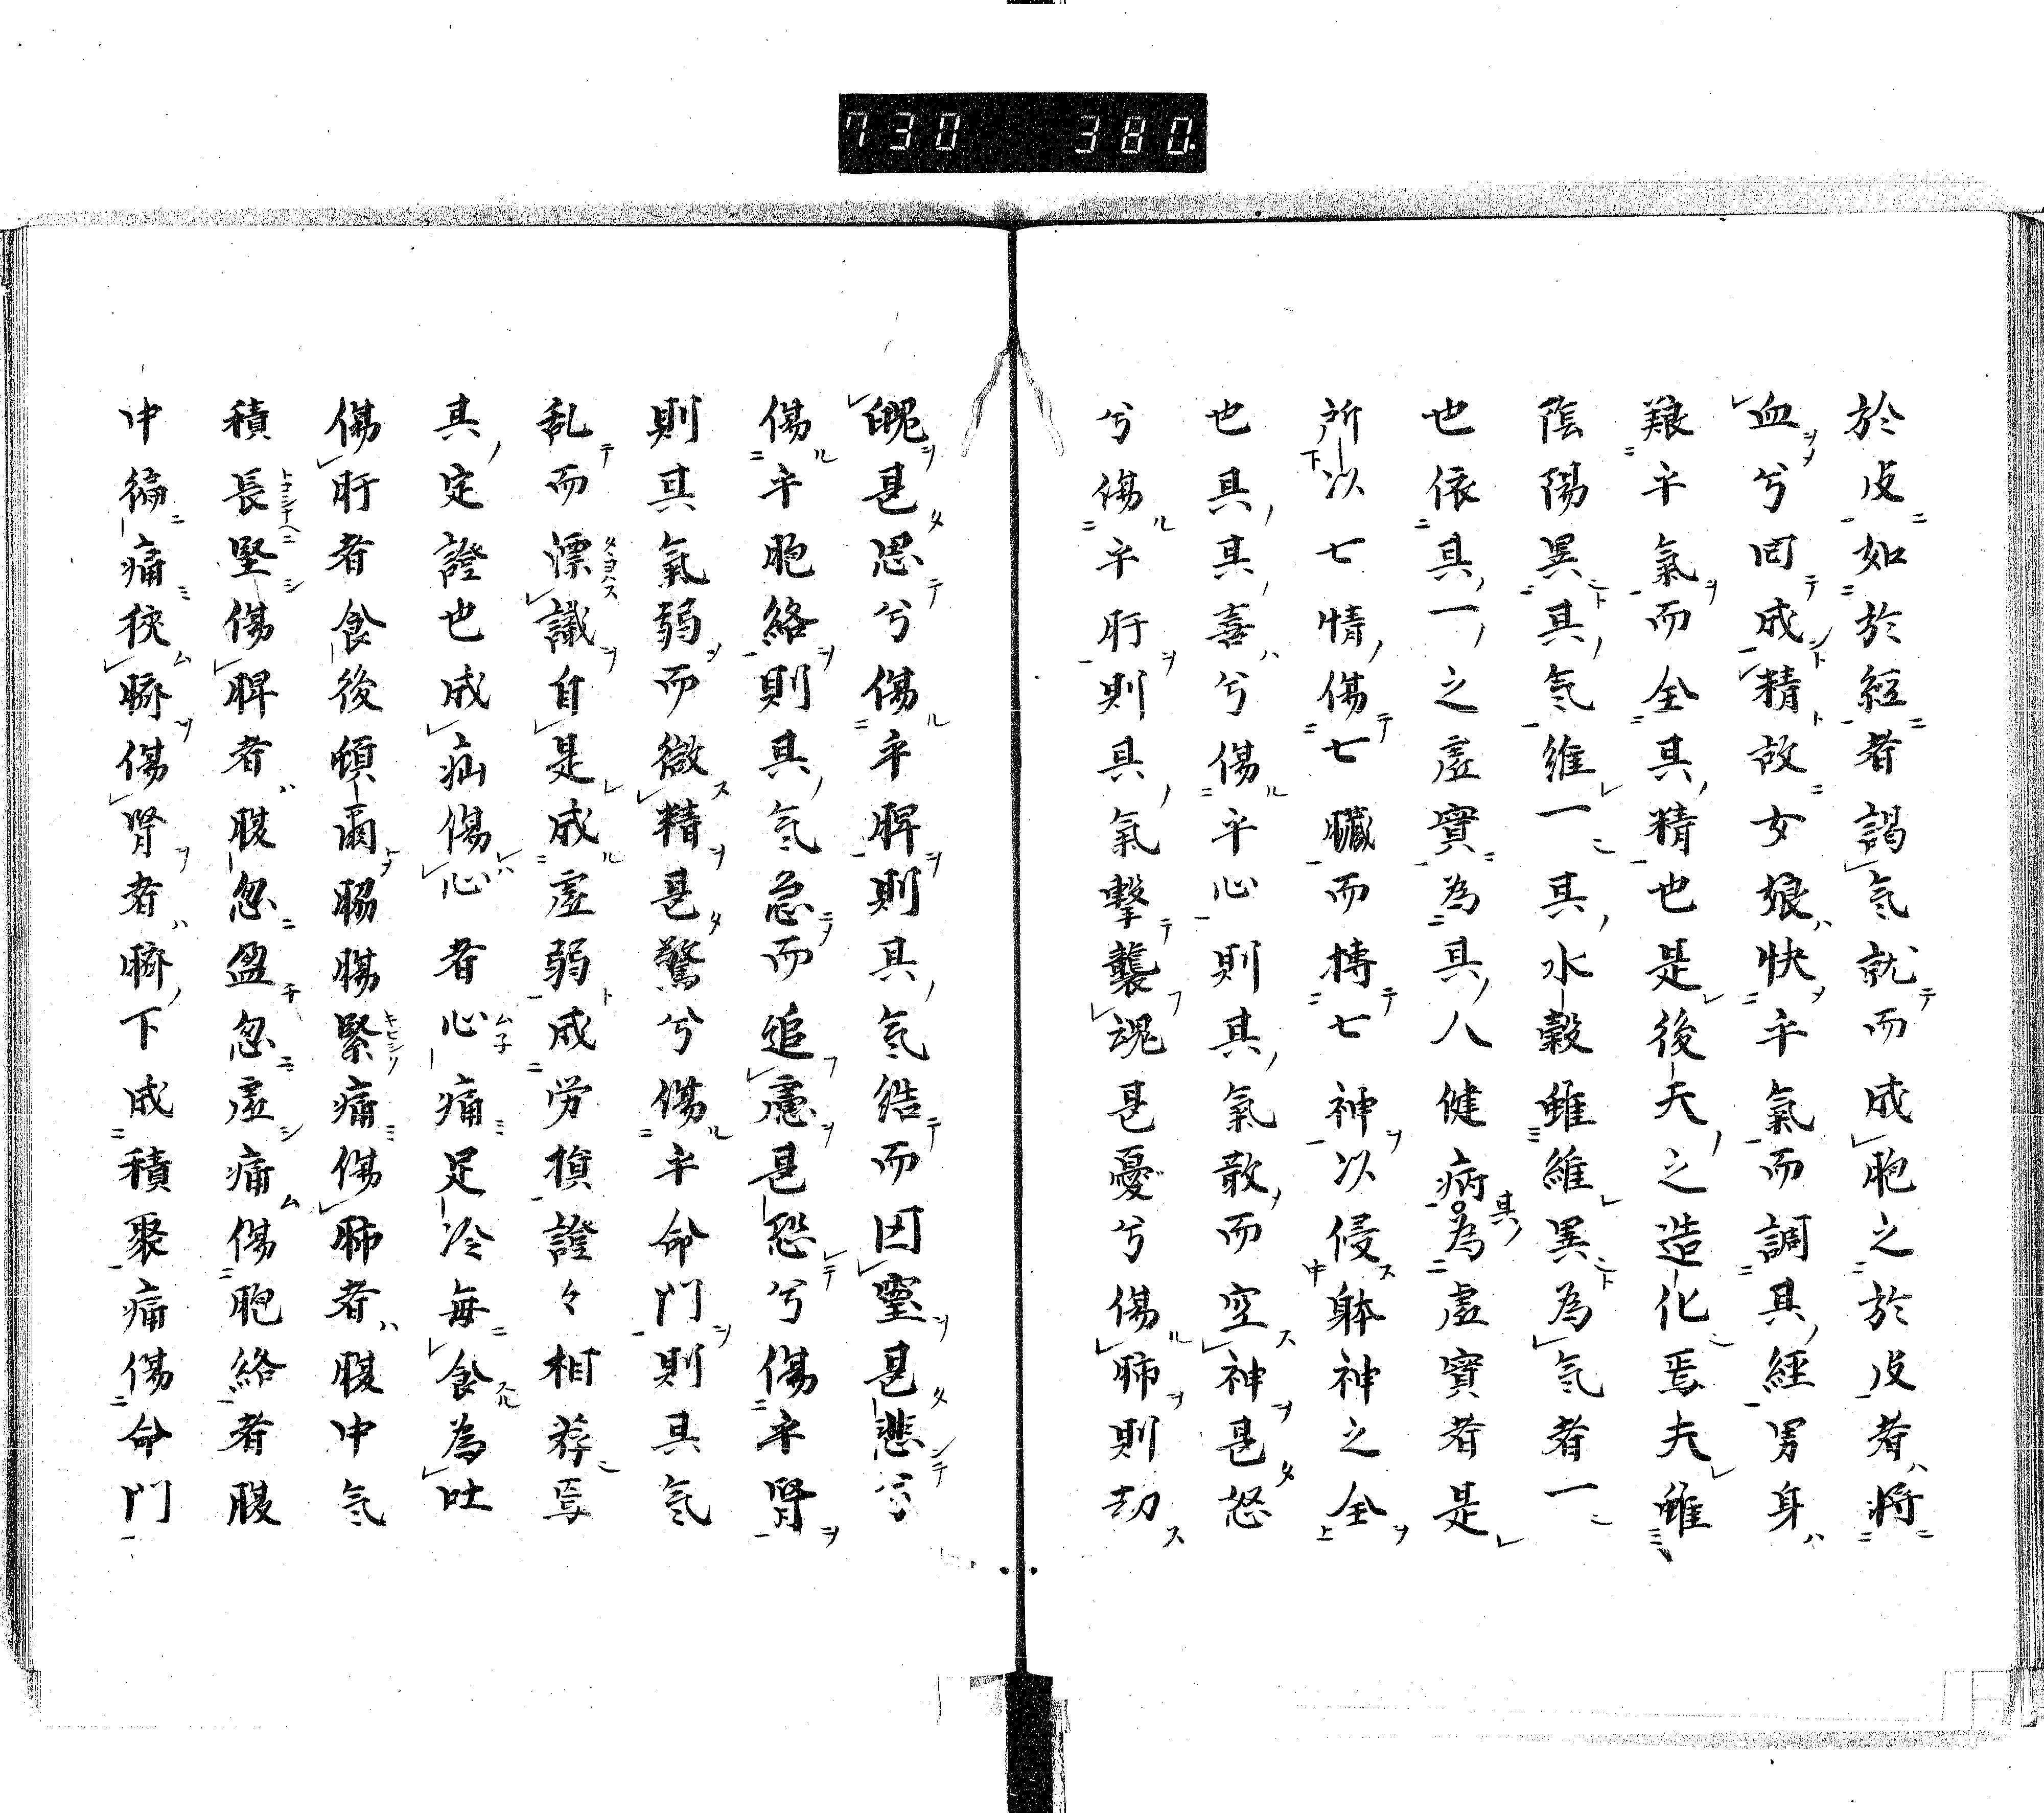 730 380.
於皮如於經者謁气就而成胞之於皮者將
血兮因成精故女娘快乎氣而調其經男身
艱乎氣而全其精也是後天之造化焉夫雖
陰陽異其气維一其水穀雖維異為气者一
也依其一之虛實為其人健病為其虛實者是
所以七情傷七臟而摶七神以侵躰神之全
也其其喜兮傷乎心則其氣散而空神甚怒
兮傷乎肝則其氣擊襲魂甚憂兮傷肺則劫
魄甚思兮傷乎脾則其气結而因靈甚悲兮
傷乎胞絡則其气急而追慮甚恐兮傷乎腎
則其氣弱而微精甚驚兮傷乎命門則其气
乱而漂識自是成虛弱成労損證々相荐焉
其定證也成疝傷心者心痛足冷每食為吐
傷肝者食後頓爾腸緊痛傷肺者腹中气
積長堅傷脾者腹忽盈忽虛痛傷胞絡者腹
中徧痛狹臍傷腎者臍下成積聚痛傷命門